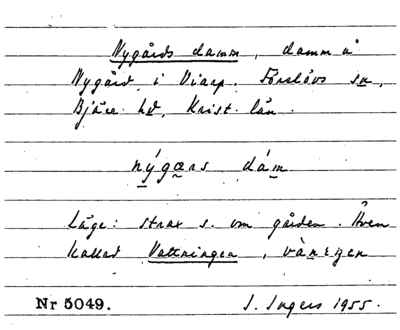 Nygårds damm, damm å
Nygård i Viarp. Förslövs sn,
Bjäre hd, Krist. län.
nýgɑrs dám
Läge: strax s. om gården. Även
kallad Vattningen, vàneŋen
Nr 5049. I. Ingers 1955.